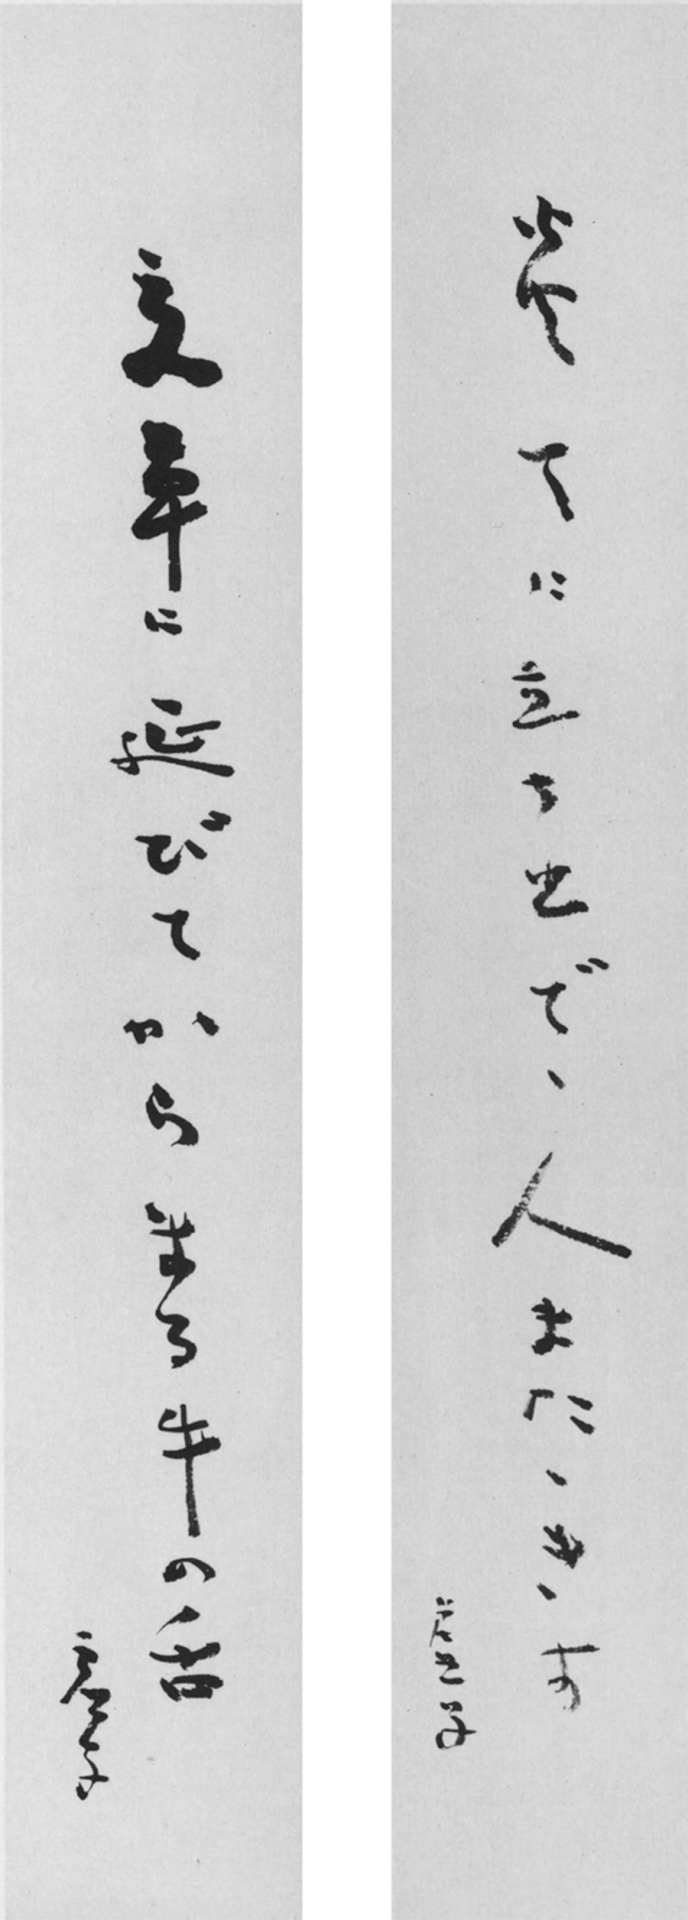 炎天に立ち出でゝ人またゝきす
夏草に延びてからまる牛の舌
虚子